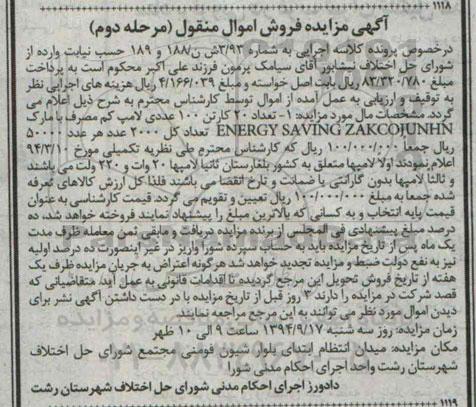 ۱۱۱۸
آگهی مزایده فروش اموال منقول (مرحله دوم)
درخصوص پرونده کلاسه اجرایی به شماره ۳/۹۳ش ن/۱۸۸ و ۱۸۹ حسب نیابت وارده از
شورای حل اختلاف نیشابور آقای سیامک پرمون فرزند علی اکبر محکوم است به پرداخت
مبلغ ۸۳/۳۲۰/۷۸۰ ریال بابت اصل خواسته و مبلغ ۴/۱۶۶/۰۳۹ ریال هزینه های اجرایی نظر
به توقیف و ارزیابی به عمل آمده از اموال توسط کارشناس محترم به شرح ذیل اعلام می
گردد. مشخصات مال مورد مزایده: ۱- تعداد ۲۰ کارتن ۱۰۰ عددی لامپ کم مصرف با مارک
ENERGY SAVING ZAKCOJUNHN تعداد کل ۲۰۰۰ عدد هر عدد ۵۰۰۰۰
ریال جمعاً ۱۰۰/۰۰۰/۰۰۰ ریال که کارشناس محترم طی نظریه تکمیلی مورخ ۹۴/۳/۱۰
اعلام نمودند اولا لامپها متعلق به کشور بلغارستان ثانیا لامپها ۲۰ وات و ۲۲۰ ولت می باشند
و ثالثا لامپها بدون گارانتی یا ضمانت و تارخ انقضا می باشند فلذا کل ارزش کالاهای تعرفه
شده جمعاً به مبلغ ۱۰۰/۰۰۰/۰۰۰ ریال تعیین و تقویم می گردد. قیمت کارشناسی به عنوان
قیمت پایه انتخاب و به کسانی که بالاترین مبلغ را پیشنهاد نمایند فروخته خواهد شد، ده
درصد مبلغ پیشنهادی فی المجلس از برنده مزایده دریافت و مابقی ثمن معامله ظرف مدت
یک ماه پس از تاریخ مزایده باید به حساب سپرده شورا واریز در غیر اینصورت ده درصد اولیه
نیز به نفع دولت ضبط و مزایده تجدید خواهد شد هرگونه اعتراض به جریان مزایده ظرف یک
هفته از تاریخ فروش تحویل این مرجع گردیده تا اقدامات قانونی به عمل آید. متقاضیانی که
قصد شرکت در مزایده را دارند ۳ روز قبل از تاریخ مزایده با در دست داشتن آگهی نشر برای
دیدن اموال مورد نظر می توانند به این مرجع مراجعه نمایند
زمان مزایده: روز سه شنبه ۱۳۹۴/۹/۱۷ ساعت ۹ الی ۱۰ ظهر
مکان مزایده: میدان انتظام ابتدای بلوار شیون فومنی مجتمع شورای حل اختلاف
شهرستان رشت واحد اجرای احکام مدنی شورا
دادورز اجرای احکام مدنی شورای حل اختلاف شهرستان رشت
۱۱۱۹